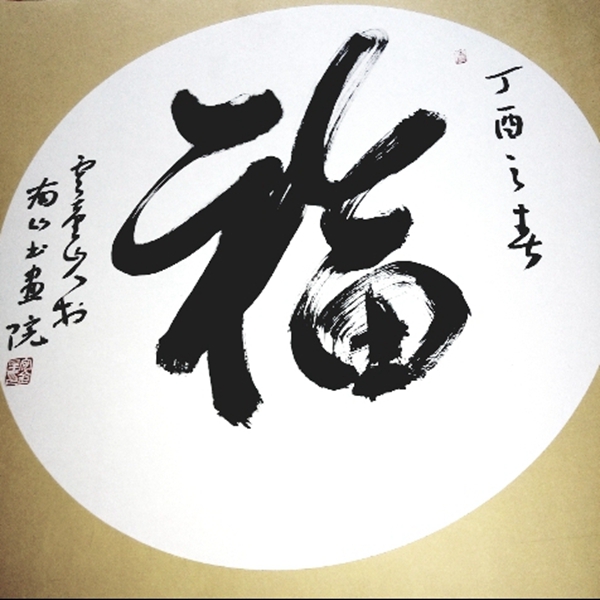 丁酉之春
福
云台山人书于
南山书画院